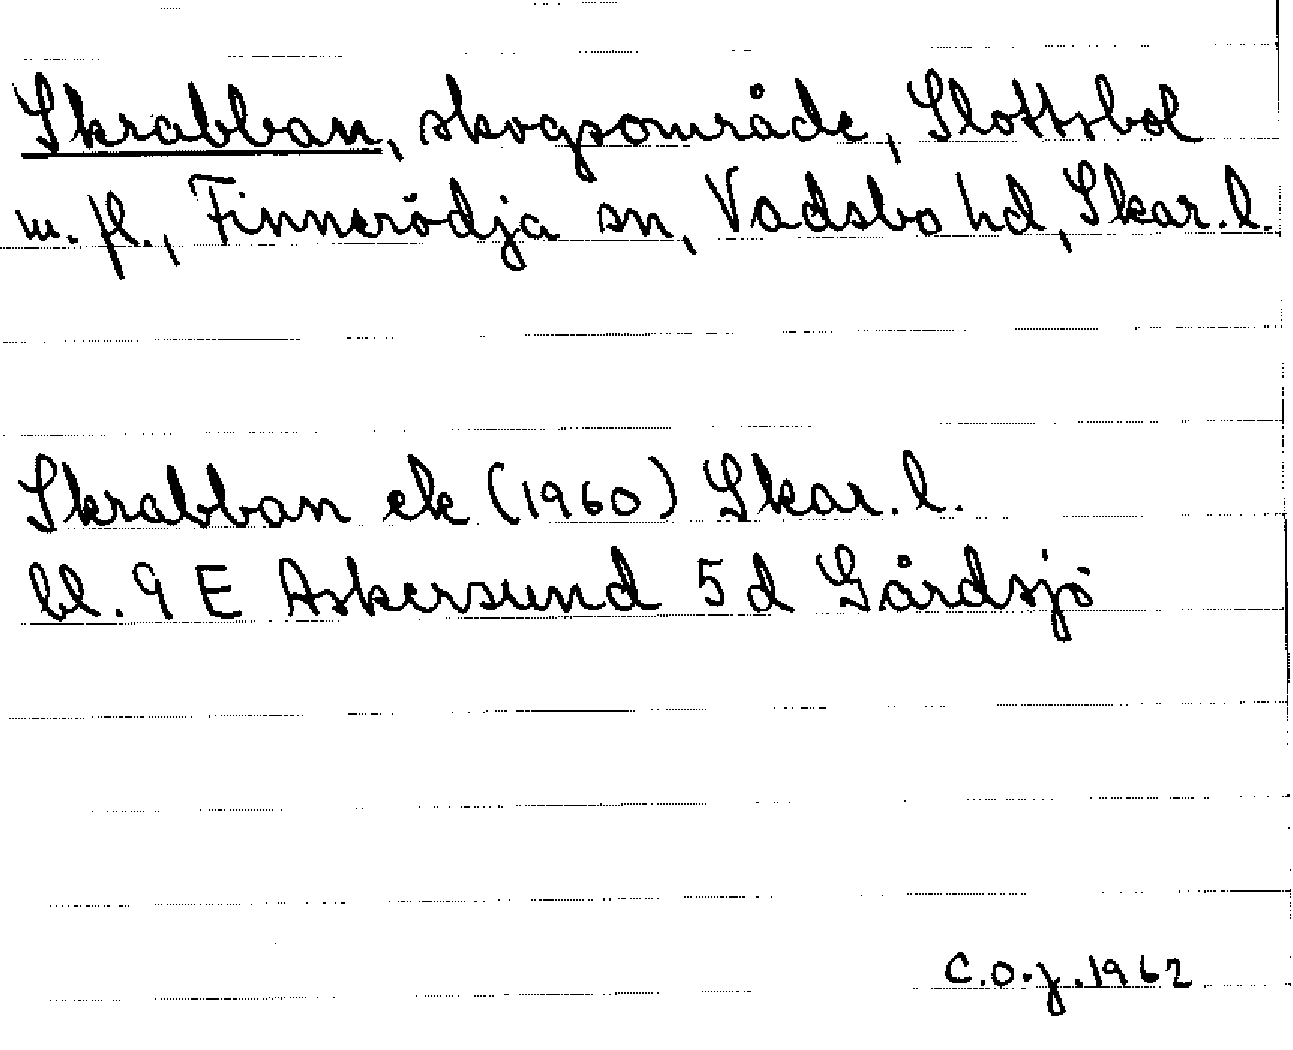 Skrabban, skogsområde, Slottsbol
m. fl., Finnerödja sn, Vadsbo hd, Skar. l.
Skrabban ek (1960) Skar. l.
bl. 9 E Askersund 5 d Gårdsjö
C.O.J. 1962